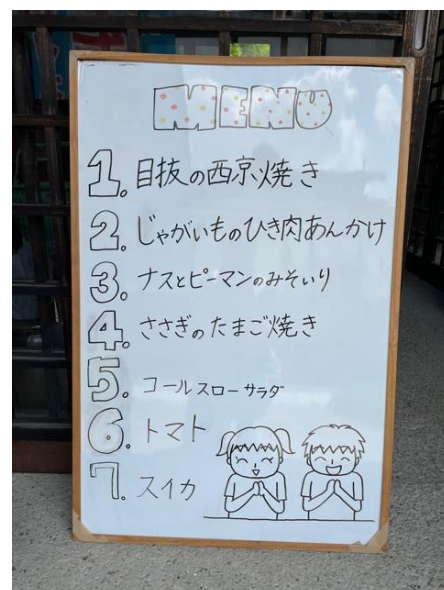 MENU
1. 目抜の西京焼き
2. じゃがいものひき肉あんかけ
3. ナスとピーマンのみそいり
4. ささぎのたまご焼き
5. コールスローサラダ
6. トマト
7. スイカ